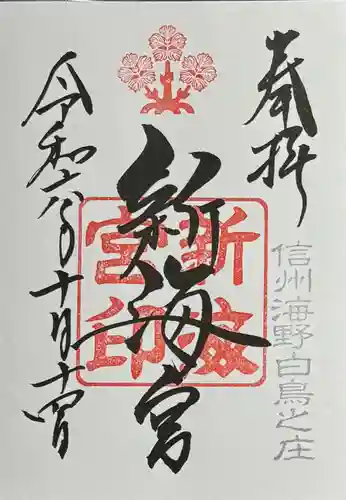 奉拝
信州海野白鳥之庄
新海宮
新海宮印
令和六年十月十四日